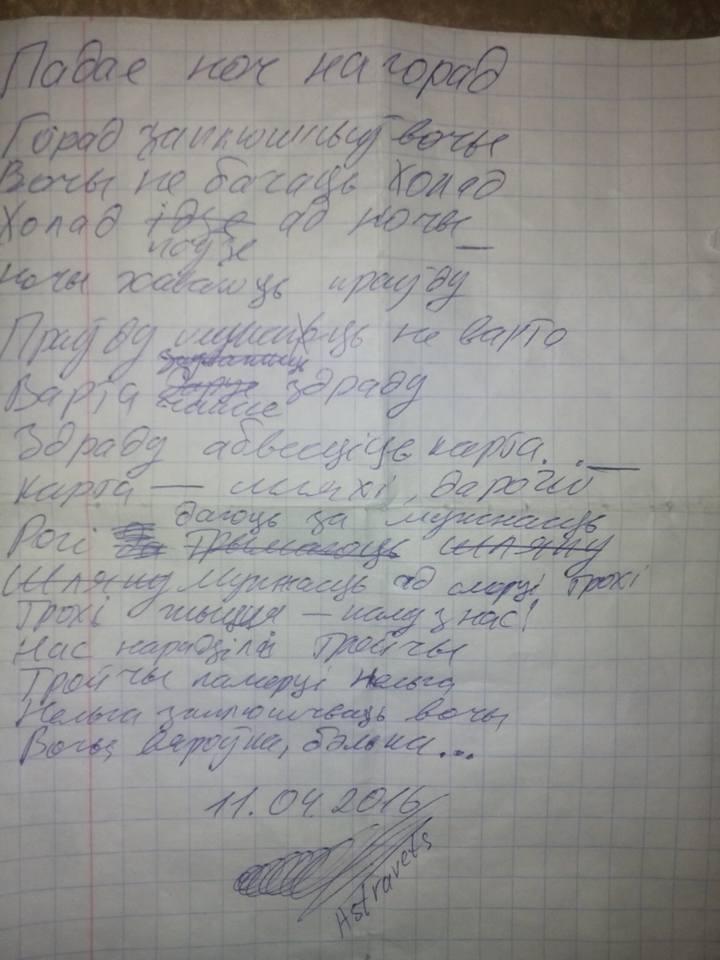 Падае ноч на горад
Горад заплюшчыў вочы
Вочы не бачаць Холад
Холад ідзе ад ночы
паўзе
Ночы хаваюць праўду
Праўду не варта
Варта здраду
Здраду абвесціць карта.
Карта — шляхі, дарогі
даюць за мужнасць
Рогі За трымаюць шляху
Шляху мужнасць ад смерці трохі
Трохі жыцця — полу з нас!
Нас нарадзілі тройчы
Тройчы памерці нельга
Нельга заплюшчваць вочы
Вочы, вяроўка, бэлька...
11.04.2016
Astravets